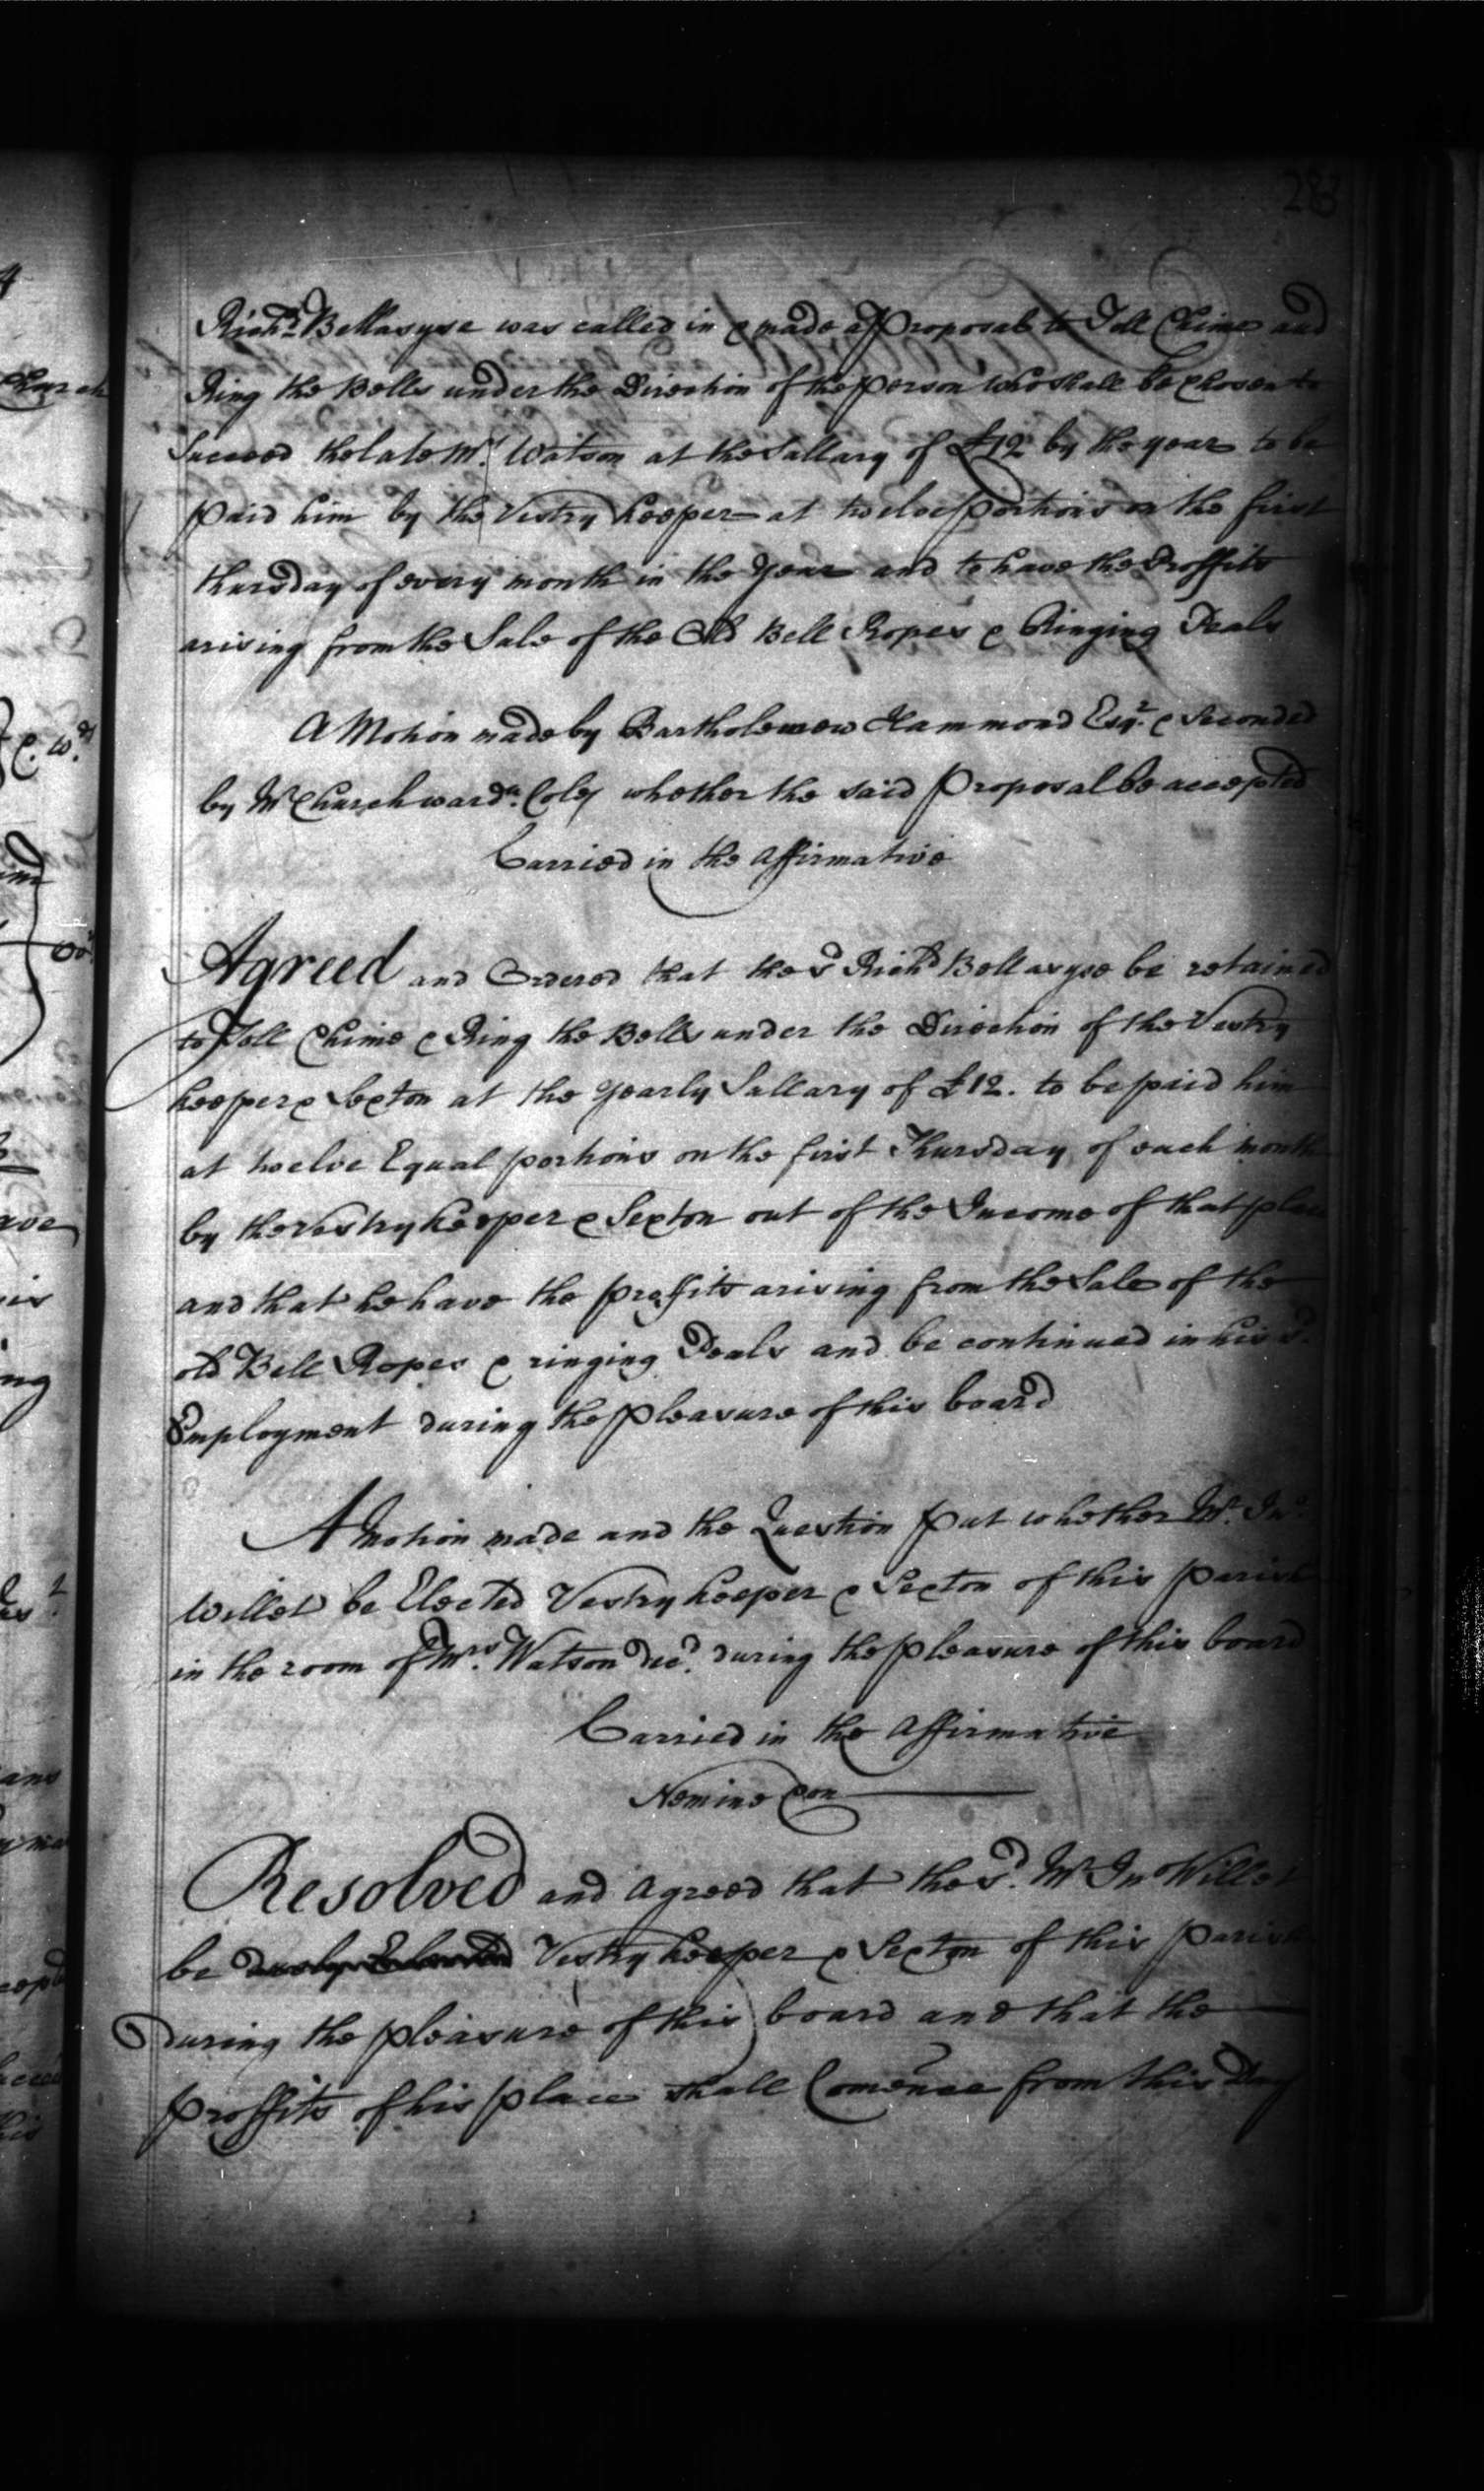 283
Richd. Bellasyse was called in & made a Proposal to Toll Chime and
Ring the Bells under the Direction of the person who shall be chosen to
Succeed the late Mrs. Watson at the Sallary of £12 by the year to be
paid him by the Vestry keeper at twelve portions on the first
thursday of every month in the year and to have the Proffits
arising from the Sale of the Old Bell Ropes & Ringing Peals
A Motion made by Bartholemew Hammond Esqr. & Seconded
by Mr Churchwardn. Coley whether the said Proposal be accepted
Carried in the Affirmative
Agreed and Ordered that the sd Richd Bellasyse be retained
to Toll Chime & Ring the Bells under the Direction of the Vestry
keeper & Sexton at the yearly Sallary of £12. to be paid him
at twelve Equal portions on the first Thursday of each month
by the vestry keeper & Sexton out of the Income of that place
and that he have the proffits arising from the Sale of the
old Bell Ropes & ringing Peals and be continued in his sd.
Employment during the pleasure of this board
A Motion made and the Question put whether Mr. Jno.
Willet be Elected Vestry keeper & Sexton of this parish
in the room of Mrs. Watson decd. during the pleasure of this board
Carried in the Affirmative
Nemine Con
Resolved and Agreed that the sd. Mr Jno Willet
be Vestry keeper & Sexton of this parish
During the pleasure of this board and that the
proffits of his place shall Comence from this Day